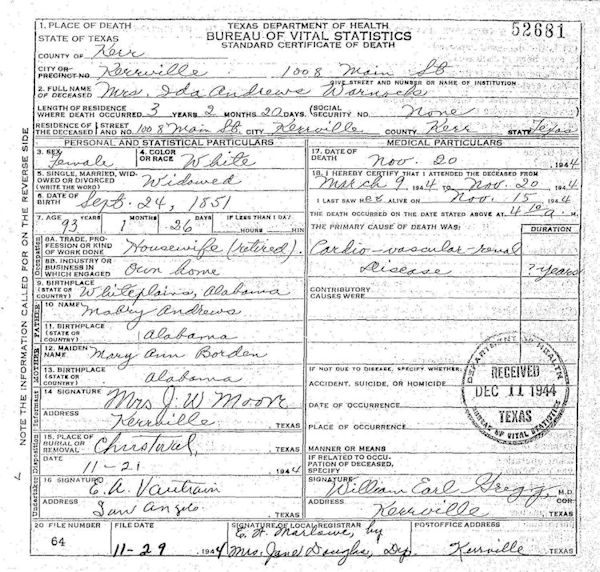 52681
TEXAS DEPARTMENT OF HEALTH
BUREAU OF VITAL STATISTICS
STANDARD CERTIFICATE OF DEATH
1. PLACE OF DEATH
STATE OF TEXAS
COUNTY OF Kerr
CITY OR PRECINCT NO. Kerrville 1008 Main St
GIVE STREET AND NUMBER OR NAME OF INSTITUTION
2. FULL NAME OF DECEASED Mrs. Ida Andrews Warnock
LENGTH OF RESIDENCE WHERE DEATH OCCURRED 3 YEARS 2 MONTHS 20 DAYS (SOCIAL SECURITY NO. None
RESIDENCE OF THE DECEASED STREET AND NO. 1008 Main St. CITY Kerrville COUNTY Kerr STATE Texas
PERSONAL AND STATISTICAL PARTICULARS
3. SEX Female
4. COLOR OR RACE White
5. SINGLE, MARRIED, WIDOWED OR DIVORCED (WRITE THE WORD) Widowed
6. DATE OF BIRTH Sept. 24, 1851
7. AGE 93 YEARS 1 MONTHS 26 DAYS IF LESS THAN 1 DAY HOURS MIN
8A. TRADE, PROFESSION OR KIND OF WORK DONE Housewife (retired).
8B. INDUSTRY OR BUSINESS IN WHICH ENGAGED Own home
9. BIRTHPLACE (STATE OR COUNTRY) Whiteplains, Alabama
10 NAME Mabry Andrews
11. BIRTHPLACE (STATE OR COUNTRY) Alabama
12. MAIDEN NAME Mary Ann Borden
13. BIRTHPLACE (STATE OR COUNTRY) Alabama
14 SIGNATURE Mrs J. W. Moore
ADDRESS Kerrville, TEXAS
15. PLACE OF BURIAL OR REMOVAL Christoval, TEXAS
DATE 11-21 1944
16 SIGNATURE E. A. Vautrain
ADDRESS San Angelo TEXAS
MEDICAL PARTICULARS
17. DATE OF DEATH Nov. 20 1944
18. I HEREBY CERTIFY THAT I ATTENDED THE DECEASED FROM
March 9 1944 TO Nov. 20 1944
I LAST SAW HER ALIVE ON Nov. 15 1944
THE DEATH OCCURRED ON THE DATE STATED ABOVE AT 4 10 a. M.
THE PRIMARY CAUSE OF DEATH WAS: DURATION
Cardio-vascular-renal
Disease ? years
CONTRIBUTORY CAUSES WERE:
IF NOT DUE TO DISEASE, SPECIFY WHETHER:
ACCIDENT, SUICIDE, OR HOMICIDE
DATE OF OCCURRENCE
PLACE OF OCCURRENCE
MANNER OR MEANS
IF RELATED TO OCCUPATION OF DECEASED, SPECIFY
SIGNATURE William Earl Gregg M.D.
ADDRESS Kerrville TEXAS
DEPARTMENT OF HEALTH
RECEIVED
DEC 11 1944
TEXAS
BUREAU OF VITAL STATISTICS
20 FILE NUMBER 64
FILE DATE 11-29 1944
SIGNATURE OF LOCAL REGISTRAR E. H. Marlowe, by
Mrs. Jane Douglas, Dep.
POSTOFFICE ADDRESS Kerrville TEXAS
NOTE THE INFORMATION CALLED FOR ON THE REVERSE SIDE
Occupation
FATHER
MOTHER
Informant
Disposition
Undertaker